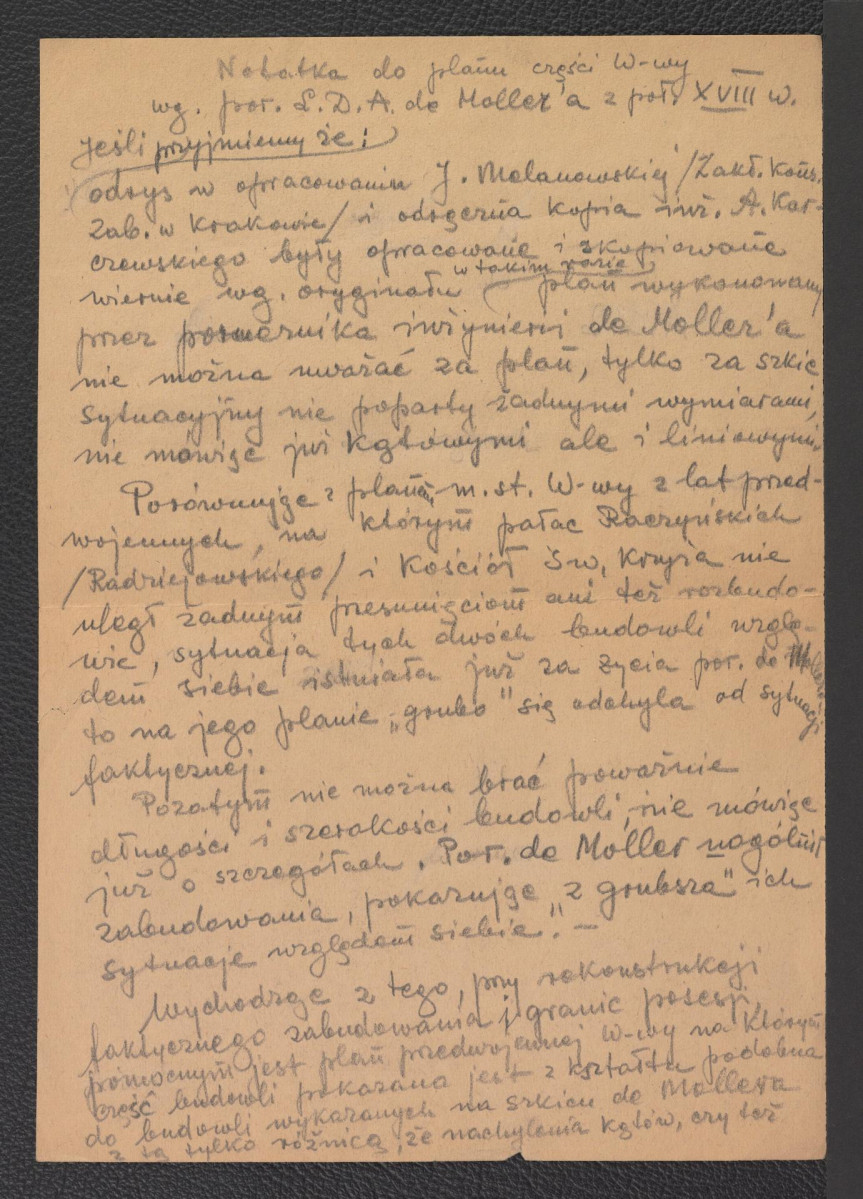 Notatka do planu części W-wy
wg. por. L. D. A. de Moller'a z poł. XVIII w.
Jeśli przyjmiemy że:
odrys w opracowaniu J. Malanowskiej /Zakł. Kons.
Zab. w Krakowie/ i odręczna kopia inż. A. Kar-
czewskiego były opracowane i skopiowane
wiernie wg. oryginału w takim razie plan wykonowany
przez porucznika inżynierii de Möller'a
nie można uważać za plan, tylko za szkic
sytuacyjny nie poparty żadnymi wymiarami,
nie mówiąc już kątowymi ale i liniowymi.
Porównując z planem m. st. W-wy z lat przed-
wojennych, na którym pałac Raczyńskich
/Radziejowskiego/ i Kościół Św. Krzyża nie
uległ żadnym przesunięciom ani też rozbudo-
wie, sytuacja tych dwóch budowli wzglę-
dem siebie istniała już za życia por. de Mollera
to na jego planie „grubo" się odchyla od sytuacji
faktycznej.
Pozatym nie można brać poważnie
długości i szerokości budowli, nie mówiąc
już o szczegółach. Por. de Möller uogólnił
zabudowania, pokazując „z grubsza" ich
sytuacje względem siebie". —
Wychodząc z tego, przy rekonstrukcji
faktycznego zabudowania i granic posesji,
pomocnym jest plan przedwojennej W-wy na którym
część budowli pokazana jest z kształtu podobna
do budowli wykazanych na szkicu de Mollera
z tą tylko różnicą, że nachylenia kątów, czy też